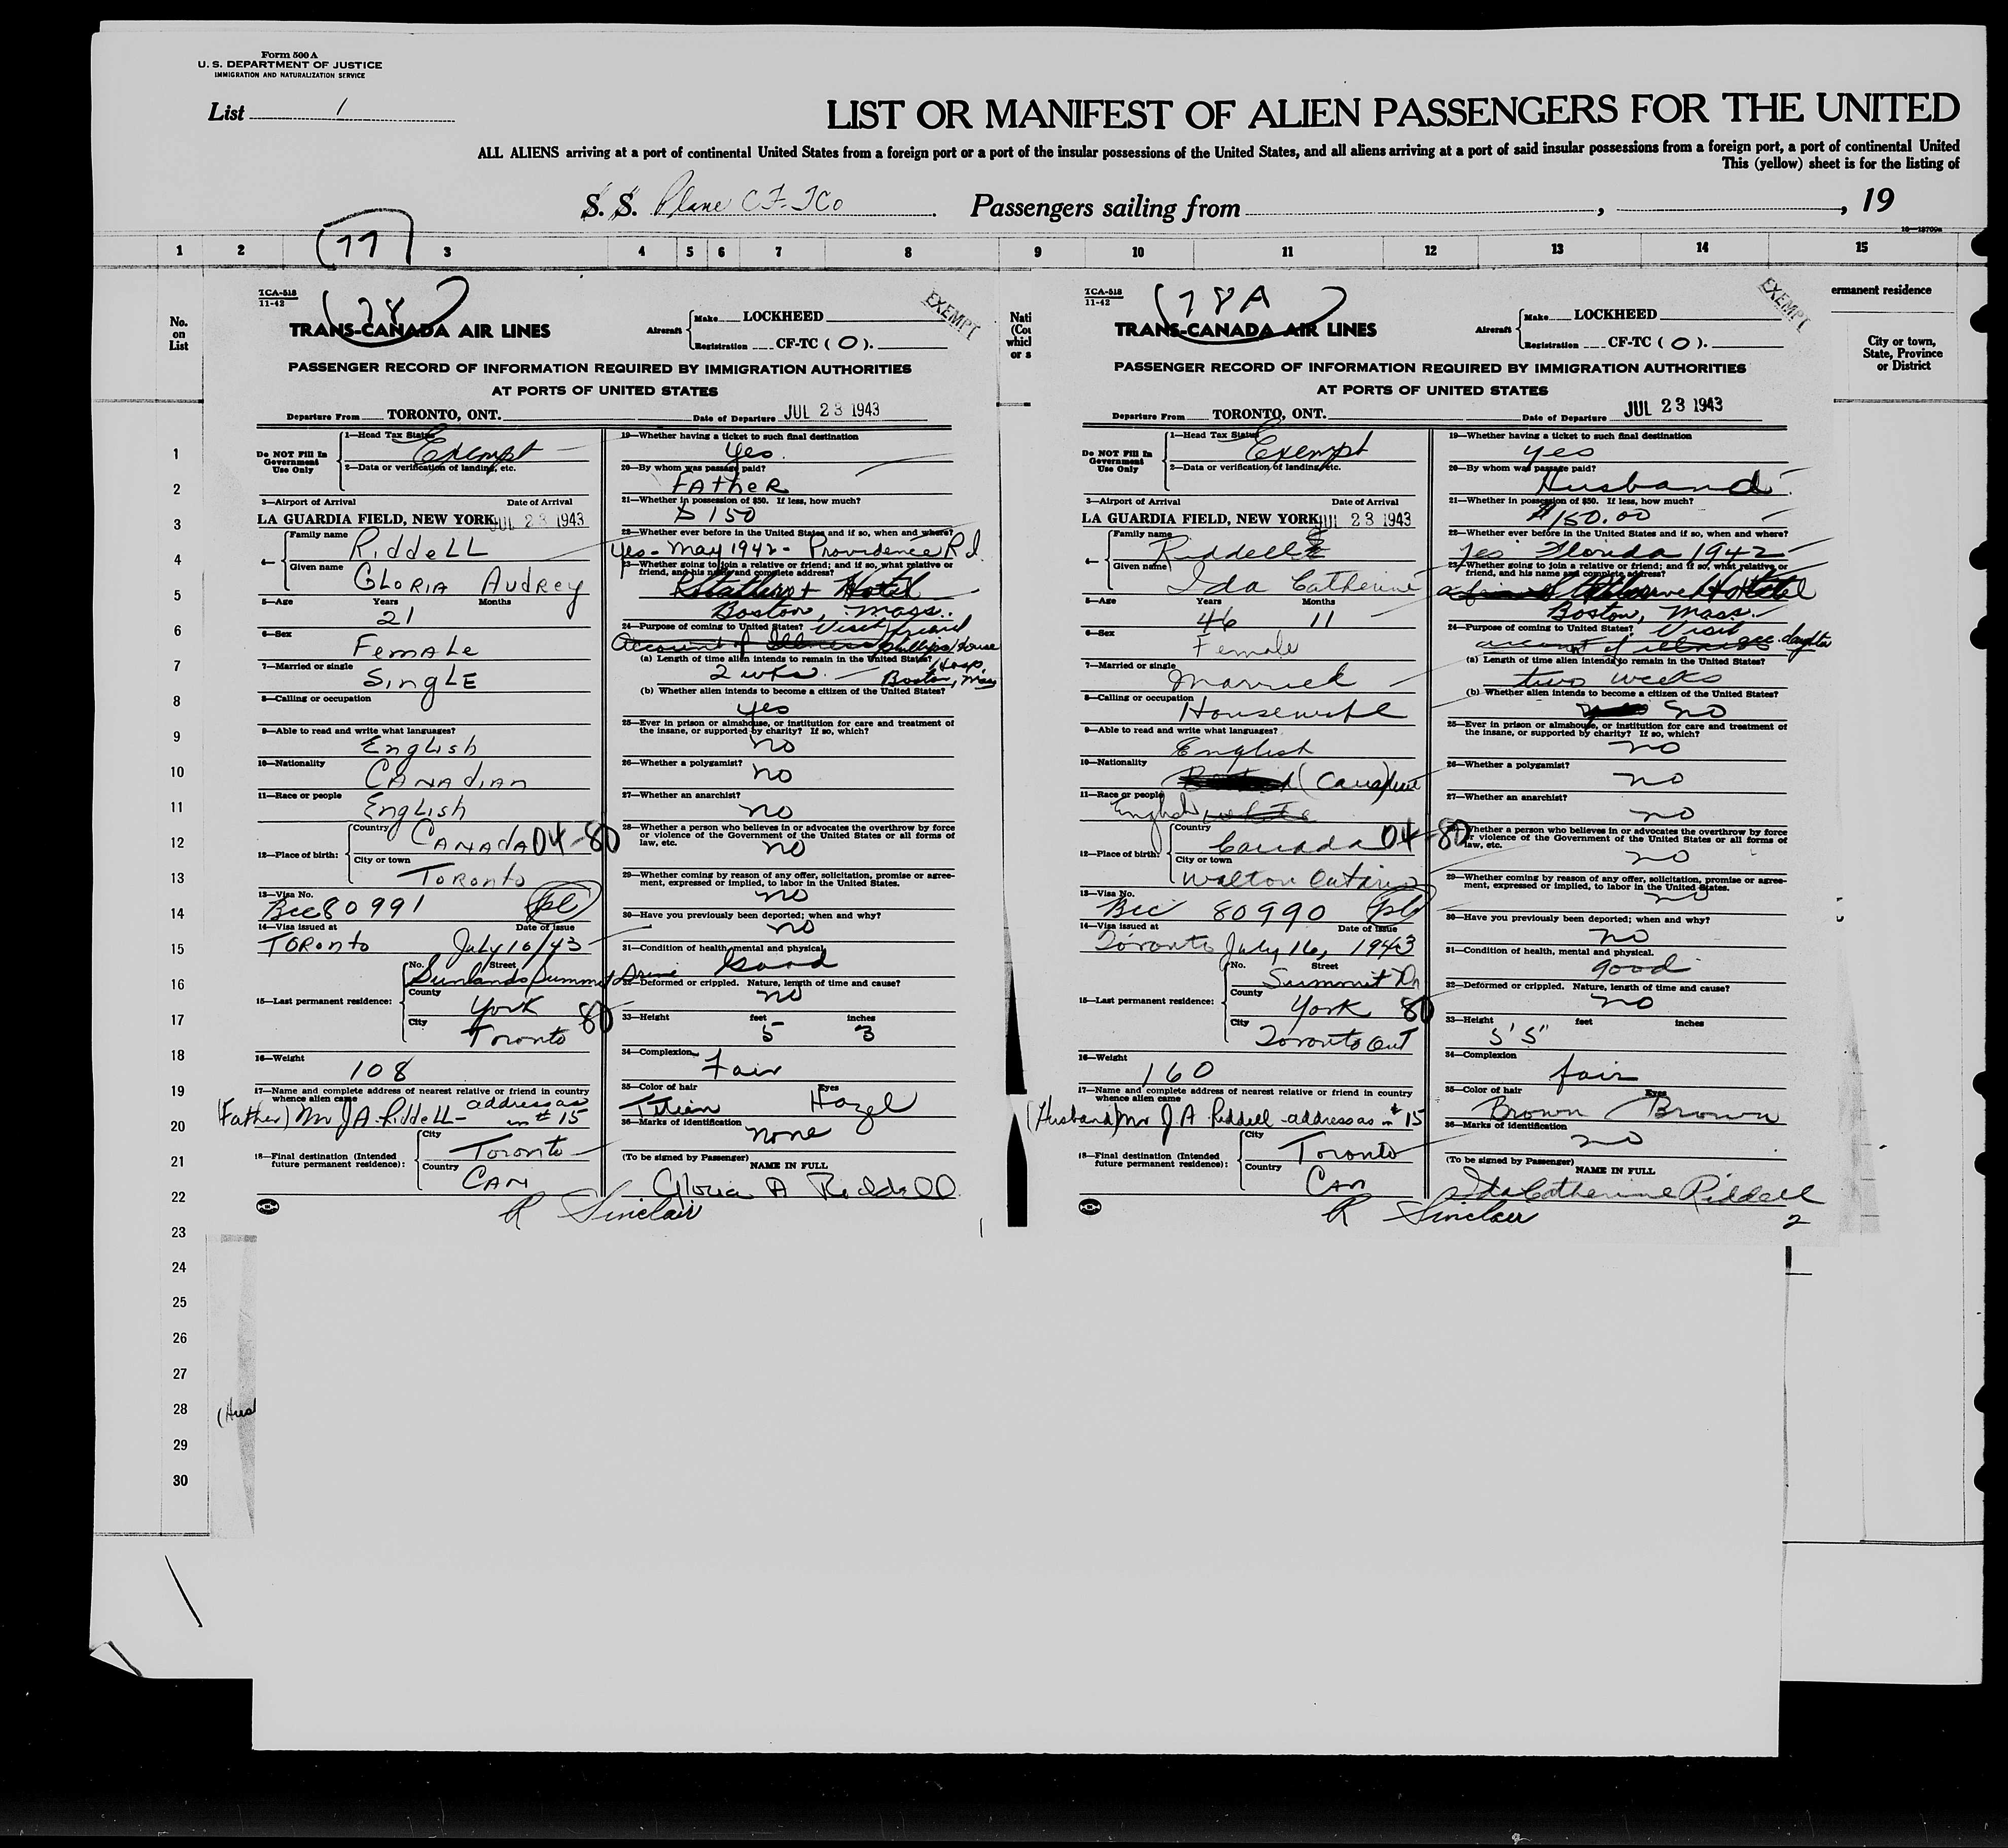 Form 500 A
U. S. DEPARTMENT OF JUSTICE
IMMIGRATION AND NATURALIZATION SERVICE
List 1
LIST OR MANIFEST OF ALIEN PASSENGERS FOR THE UNITED
ALL ALIENS arriving at a port of continental United States from a foreign port or a port of the insular possessions of the United States, and all aliens arriving at a port of said insular possessions from a foreign port, a port of continental United
This (yellow) sheet is for the listing of
S. S. Plane CF-TCO. Passengers sailing from , , 19
77
1 2 3 4 5 6 7 8 9 10 11 12 13 14 15
No.
on
List
1
2
3
4
5
6
7
8
9
10
11
12
13
14
15
16
17
18
19
20
21
22
23
24
25
26
27
28
29
30
TCA-518
11-42
78
EXEMPT
TRANS-CANADA AIR LINES
Aircraft
Make LOCKHEED
Registration CF-TC ( O ).
PASSENGER RECORD OF INFORMATION REQUIRED BY IMMIGRATION AUTHORITIES
AT PORTS OF UNITED STATES
Departure From TORONTO, ONT. Date of Departure JUL 23 1943
Do NOT Fill In
Government
Use Only
1—Head Tax Status
Exempt
2—Data or verification of landing, etc.
3—Airport of Arrival Date of Arrival
LA GUARDIA FIELD, NEW YORK JUL 23 1943
4—
Family name
Riddell
Given name
GLORIA Audrey
5—Age Years Months
21
6—Sex
Female
7—Married or single
Single
8—Calling or occupation
9—Able to read and write what languages?
English
10—Nationality
Canadian
11—Race or people
English
12—Place of birth:
Country
Canada 04-80
City or town
Toronto
13—Visa No.
Bcc 80991
14—Visa issued at Date of Issue
Toronto July 16/43
15—Last permanent residence:
No. Street
Sunlands Summit Drive
County
York 80
City
Toronto
16—Weight
108
17—Name and complete address of nearest relative or friend in country
whence alien came
(Father) Mr J A. Riddell - address as
in #15
18—Final destination (Intended
future permanent residence):
City
Toronto
Country
CAN
19—Whether having a ticket to such final destination
Yes
20—By whom was passage paid?
Father
21—Whether in possession of $50. If less, how much?
$150
22—Whether ever before in the United States and if so, when and where?
Yes - May 1942 - Providence R.I.
23—Whether going to join a relative or friend; and if so, what relative or
friend, and his name and complete address?
Hotel
Boston, Mass.
24—Purpose of coming to United States? Visit friend
Account of Illness Phillips House
Hosp.
Boston, Mass
(a) Length of time alien intends to remain in the United States?
2 wks.
(b) Whether alien intends to become a citizen of the United States?
yes
25—Ever in prison or almshouse, or institution for care and treatment of
the insane, or supported by charity? If so, which?
no
26—Whether a polygamist?
no
27—Whether an anarchist?
no
28—Whether a person who believes in or advocates the overthrow by force
or violence of the Government of the United States or all forms of
law, etc.
no
29—Whether coming by reason of any offer, solicitation, promise or agree-
ment, expressed or implied, to labor in the United States.
no
30—Have you previously been deported; when and why?
no
31—Condition of health, mental and physical.
Good
32—Deformed or crippled. Nature, length of time and cause?
no
33—Height feet inches
5 3
34—Complexion
Fair
35—Color of hair Eyes
Titian Hazel
36—Marks of identification
none
(To be signed by Passenger) NAME IN FULL
Gloria A Riddell
R Sinclair
1
Nati
(Cou
which
or s
TCA-518
11-42
78A
EXEMPT
TRANS-CANADA AIR LINES
Aircraft
Make LOCKHEED
Registration CF-TC ( O ).
PASSENGER RECORD OF INFORMATION REQUIRED BY IMMIGRATION AUTHORITIES
AT PORTS OF UNITED STATES
Departure From TORONTO, ONT. Date of Departure JUL 23 1943
Do NOT Fill In
Government
Use Only
1—Head Tax Status
Exempt
2—Data or verification of landing, etc.
3—Airport of Arrival Date of Arrival
LA GUARDIA FIELD, NEW YORK JUL 23 1943
4—
Family name
Riddell
Given name
Ida Catherine
5—Age Years Months
46 11
6—Sex
Female
7—Married or single
Married
8—Calling or occupation
Housewife
9—Able to read and write what languages?
English
10—Nationality
(Canadian)
11—Race or people
English white
12—Place of birth:
Country
Canada 04-80
City or town
Walton Ontario
13—Visa No.
Bcc 80990
14—Visa issued at Date of Issue
Toronto July 16, 1943
15—Last permanent residence:
No. Street
Summit Dr
County
York 80
City
Toronto Ont
16—Weight
160
17—Name and complete address of nearest relative or friend in country
whence alien came
(Husband) Mr J. A Riddell - address as in #15
18—Final destination (Intended
future permanent residence):
City
Toronto
Country
Can
19—Whether having a ticket to such final destination
yes
20—By whom was passage paid?
Husband
21—Whether in possession of $50. If less, how much?
$150.00
22—Whether ever before in the United States and if so, when and where?
Yes Florida 1942
23—Whether going to join a relative or friend; and if so, what relative or
friend, and his name and complete address?
Hotel
Boston, Mass.
24—Purpose of coming to United States? Visit
account of illness daughter
(a) Length of time alien intends to remain in the United States?
two weeks
(b) Whether alien intends to become a citizen of the United States?
no
25—Ever in prison or almshouse, or institution for care and treatment of
the insane, or supported by charity? If so, which?
no
26—Whether a polygamist?
no
27—Whether an anarchist?
no
Whether a person who believes in or advocates the overthrow by force
or violence of the Government of the United States or all forms of
law, etc.
no
29—Whether coming by reason of any offer, solicitation, promise or agree-
ment, expressed or implied, to labor in the United States.
no
30—Have you previously been deported; when and why?
no
31—Condition of health, mental and physical.
good
32—Deformed or crippled. Nature, length of time and cause?
no
33—Height feet inches
5'5"
34—Complexion
fair
35—Color of hair Eyes
Brown Brown
36—Marks of identification
no
(To be signed by Passenger) NAME IN FULL
Ida Catherine Riddell
R Sinclair
2
ermanent residence
City or town,
State, Province
or District